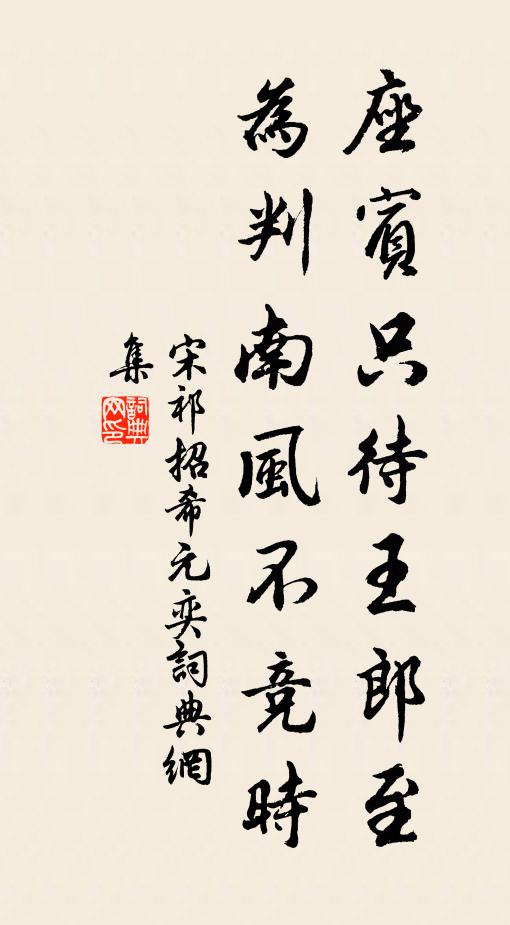 座賓只待王郎至
為判南風不竞時
宋祁招希元奕詞典網
集
詞典网印